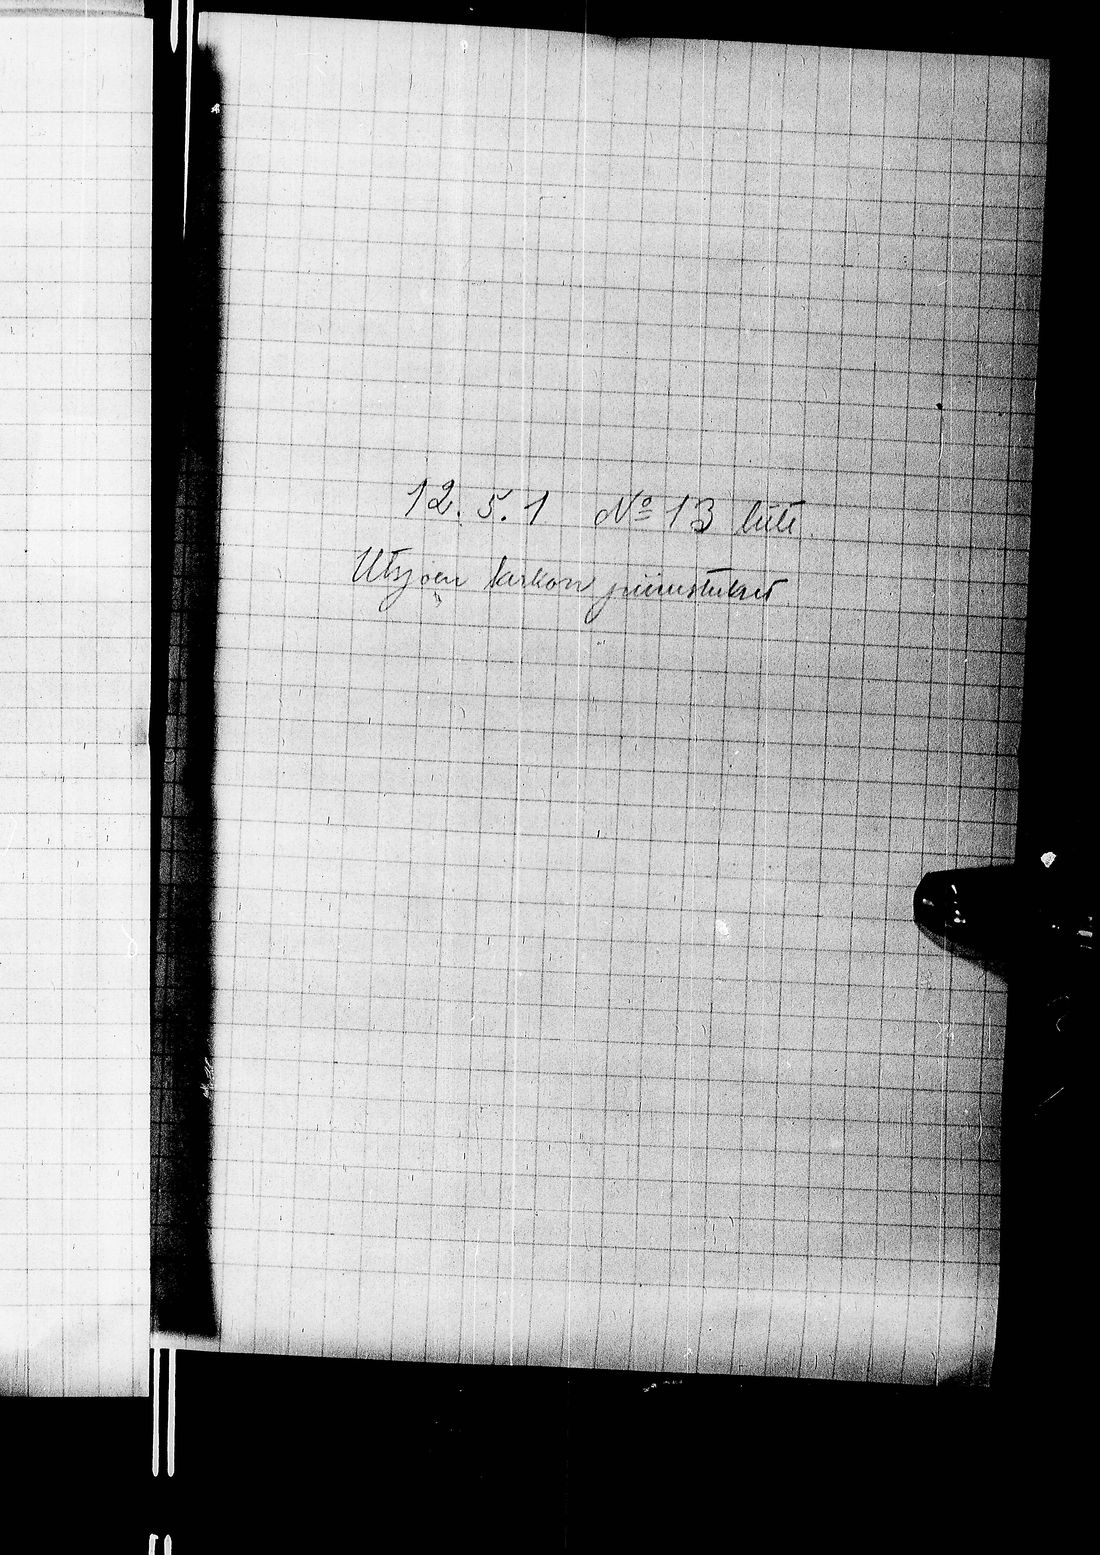 12.5.1 Nº 13 liite
Utsjoen kirkon piirustukset